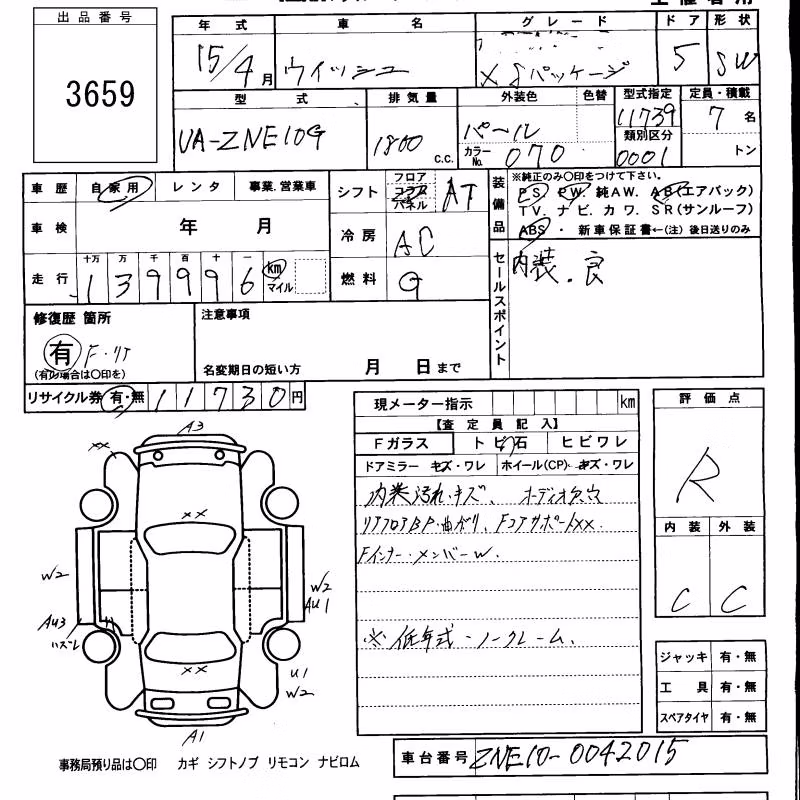 出品番号
3659
年式 車名 グレード ドア 形状
15/4月 ウィッシュ X Sパッケージ 5 SW
型式 排気量 外装色 色替 型式指定 定員・積載
UA-ZNE10G 1800 c.c. パール 11739 7名
カラーNo. 070 類別区分 0001 トン
車歴 自家用 レンタ 事業.営業車
車検 年 月
走行 十万 万 千 百 十 一
139996 km マイル
シフト フロア コラム パネル AT
冷房 AC
燃料 G
装備品 ※純正のみ〇印をつけて下さい。
PS. PW. 純AW. AB(エアバック)
TV. ナビ. カワ. SR(サンルーフ)
ABS・ 新車保証書←(注) 後日送りのみ
セールスポイント
内装.良
修復歴 箇所
有 F・リア
(有の場合は〇印を)
注意事項
名変期日の短い方 月 日まで
リサイクル券 有・無 11730円
現メーター指示 km
【査定員記入】
Fガラス トビ石 ヒビワレ
ドアミラー キズ・ワレ ホイール(CP)・キズ・ワレ
内装汚れ・キズ、オーディオ欠穴
リアフロアBP・曲がり、FコアサポートXX.
Fインナー・メンバーW.
※低年式・ノークレーム.
評価点
R
内装 外装
C C
ジャッキ 有・無
工具 有・無
スペアタイヤ 有・無
A3
XX
XX
W2
W2
AU1
AU3
ハズレ
XX
U1
W2
A1
事務局預り品は〇印 カギ シフトノブ リモコン ナビロム
車台番号 ZNE10-0042015